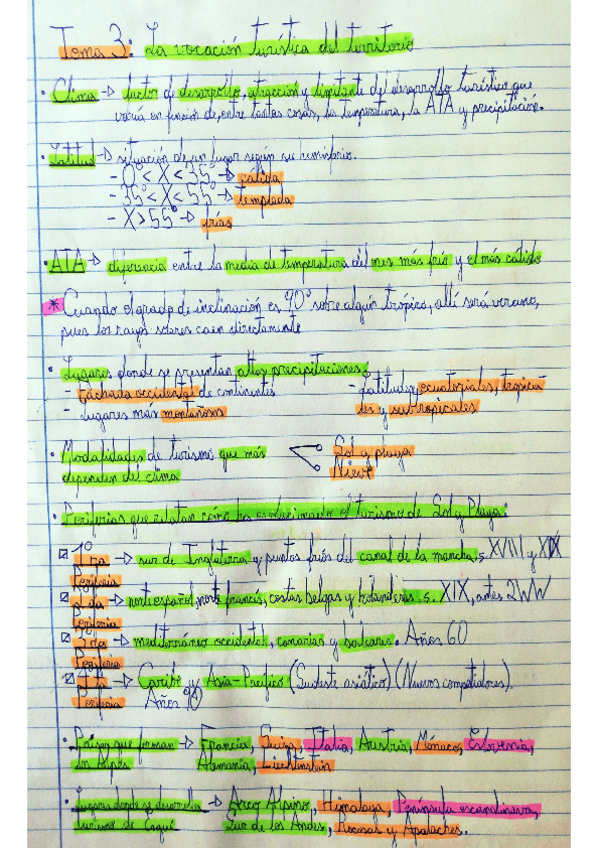 Tema 3: La vocación turística del territorio
· Clima → factor de desarrollo, atracción y limitante del desarrollo turístico que
varía en función de, entre tantas cosas, la temperatura, la ATA y precipitación.
· Latitud → situación de un lugar según su hemisferio.
- 0º < X < 35º → cálida
- 35º < X < 55º → templada
- X > 55º → frías
· ATA → diferencia entre la media de temperatura del mes más frío y el más cálido
* Cuando el grado de inclinación es 90º sobre algún trópico, allí será verano,
pues los rayos solares caen directamente
· Lugares donde se presentan altas precipitaciones:
- Fachada occidental de continentes
- Lugares más montañosos
- Latitudes ecuatoriales, tropica-
les y subtropicales
· Modalidades de turismo que más
dependen del clima
Sol y playa
Nieve
· Periferias que relatan cómo ha evolucionado el turismo de Sol y Playa:
1º
1ra Periferia → sur de Inglaterra y puntos fríos del canal de la mancha, s. XVIII y XIX
2da Periferia → norte español, norte francés, costas belgas y holandesas. s. XIX, antes 2WW
3ra Periferia → mediterráneo occidental, canarias y baleares. Años 60
4ta Periferia → Caribe y Asia-Pacífico (Sudeste asiático) (Nuevos competidores).
Años 90
· Países que forman → Francia, Suiza, Italia, Austria, Mónaco, Eslovenia,
los Alpes Alemania, Liechtenstein
· Lugares donde se desarrolla → Arco Alpino, Himalaya, Península escandinava,
turismo de Esquí Sur de los Andes, Rocosas y Apalaches.